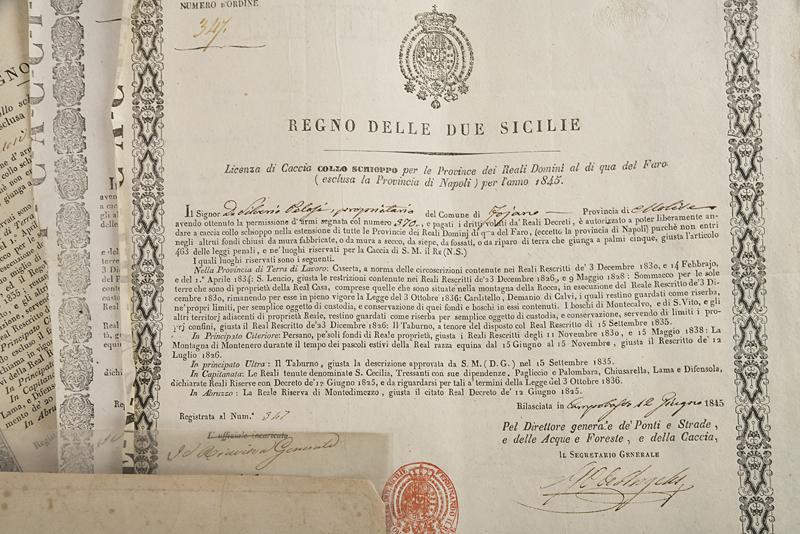 NUMERO D'ORDINE
347.
REGNO DELLE DUE SICILIE
Licenza di Caccia COLLO SCHIOPPO per le Province dei Reali Dominj al di qua del Faro
( esclusa la Provincia di Napoli ) per l'anno 1845.
Il Signor proprietario del Comune di Fojano Provincia di Molise
avendo ottenuto la permissione d'armi segnata col numero 370 e pagati i dritti voluti da' Reali Decreti, è autorizzato a poter liberamente an-
dare a caccia collo schioppo nella estensione di tutte le Provincie dei Reali Dominj di qua del Faro, (eccetto la provincia di Napoli) purchè non entri
negli altrui fondi chiusi da mura fabbricate, o da mura a secco, da siepe, da fossati, o da riparo di terra che giunga a palmi cinque, giusta l'articolo
463 delle leggi penali, e ne' luoghi riservati per la Caccia di S. M. il Re (N.S.)
I quali luoghi riservati sono i seguenti.
Nella Provincia di Terra di Lavoro: Caserta, a norma delle circoscrizioni contenute nei Reali Rescritti de' 3 Decembre 1830, e 14 Febbrajo,
e del 1.° Aprile 1834: S. Leucio, giusta le restrizioni contenute nei Reali Rescritti de'23 Decembre 1826, e 9 Maggio 1828: Sommacco per le sole
tene che sono di proprietà della Real Casa, comprese quelle che sono situate nella montagna della Rocca, in esecuzione del Reale Rescritto de'3 Di-
cembre 1830, rimanendo per esse in pieno vigore la Legge del 3 Ottobre 1836: Carditello, Demanio di Calvi, i quali restino guardati come riserba,
ne'proprj limiti, per semplice oggetto di custodia, e conservazione di quei fondi e boschi in essi contenuti. I boschi di Montecalvo, e di S. Vito, e gli
altri territorj adiacenti di proprietà Reale, restino guardati come riserba per semplice oggetto di custodia, e conservazione, servendo di limiti i pro-
prj confini, giusta il Real Rescritto de'23 Dicembre 1826: Il Taburno, a tenore del disposto col Real Rescritto di 15 Settembre 1835.
In Principato Citeriore: Persano, pe'soli fondi di Reale proprietà, giusta i Reali Rescritti degli 11 Novembre 1830, e 15 Maggio 1838: La
Montagna di Montenero durante il tempo dei pascoli estivi della Real razza equina dal 15 Giugno al 15 Novembre, giusta il Rescritto de' 12
Luglio 1826.
In principato Ultra: Il Taburno, giusta la descrizione approvata da S. M. (D. G.) nel 15 Settembre 1835.
In Capitanata: Le Reali tenute denominate S. Cecilia, Tressanti con sue dipendenze, Pagliccio e Palombara, Chiusarella, Lama e Difensola,
dichiarate Reali Riserve con Decreto de'17 Giugno 1825, e da riguardarsi per tali a'termini della Legge del 3 Ottobre 1836.
In Abruzzo: La Reale Riserva di Montedimezzo, giusta il citato Real Decreto de'17 Giugno 1825.
Rilasciata in Campobasso 12 Giugno 1845
Registrata al Num.° 347
Pel Direttore generale de' Ponti e Strade,
e delle Acque e Foreste, e della Caccia,
L'uffiziale incaricato
Il Segretario Generale